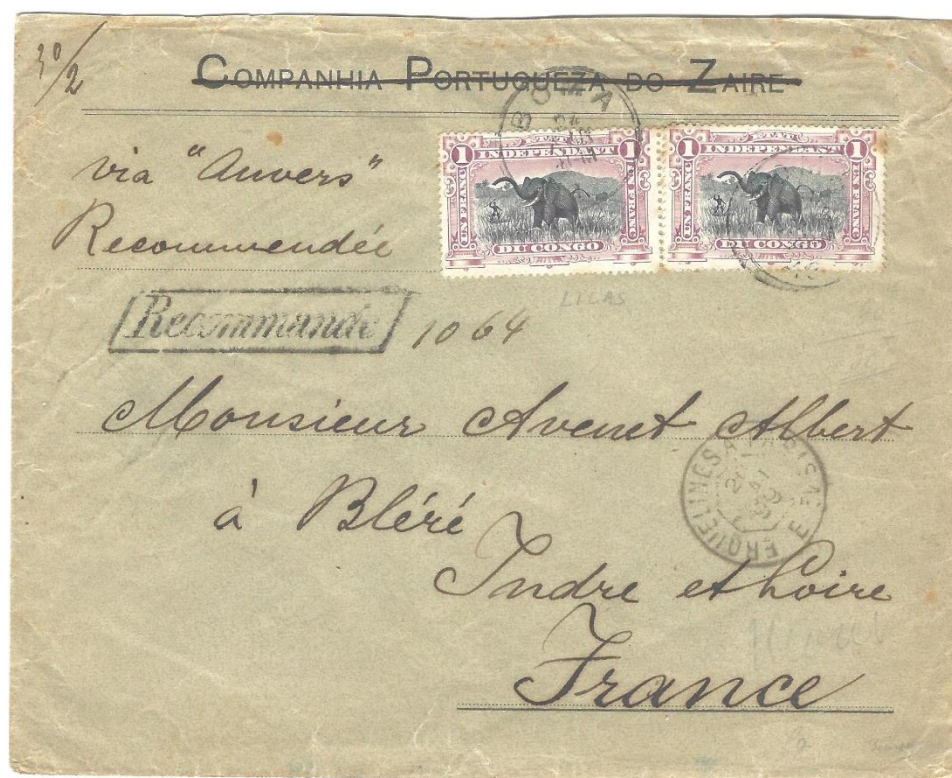 30/2
COMPANHIA PORTUGUEZA DO ZAIRE
BOMA
1 ETAT INDEPENDANT 1
UN FRANC UN FRANC
DU CONGO
1 ETAT INDEPENDANT 1
UN FRANC UN FRANC
DU CONGO
via "Anvers"
Recommendée
LILAS
Recommandé 1064
Monsieur Avenet Albert
ERQUELINES A PARIS
à Bléré
Indre et Loire
France